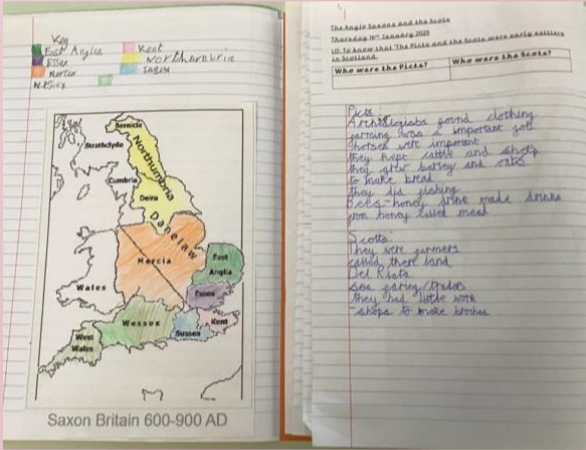 Key
East Anglia
Essex
Mercia
Wessex
Kent
Northumbria
Sussex
Bernicia
Strathclyde
Northumbria
Cumbria
Deira
Danelaw
Mercia
East
Anglia
Wales
Essex
Wessex
Kent
Sussex
West
Wales
Saxon Britain 600-900 AD
The Anglo Saxons and the Scots
Thursday 16th January 2025
LO: To know that 'The Picts and the Scots were early settlers
in Scotland.
Who were the Picts? Who were the Scots?
Picts
found clothing
farming was a important job
horses were important
they kept cattle and sheep
they grew barley and oats
to make bread
they did fishing
Bees-honey made drinks
from honey called mead
Scots
They were farmers
called there land
Del Riata
sea faring traders
they had little work
-shops to make